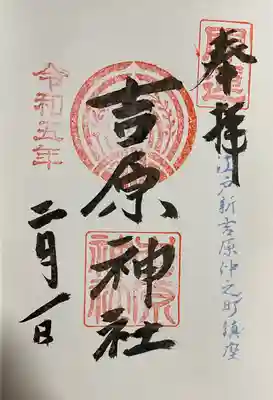 開運
奉拝
江戸新吉原仲之町鎮座
吉原神社
令和五年
二月一日